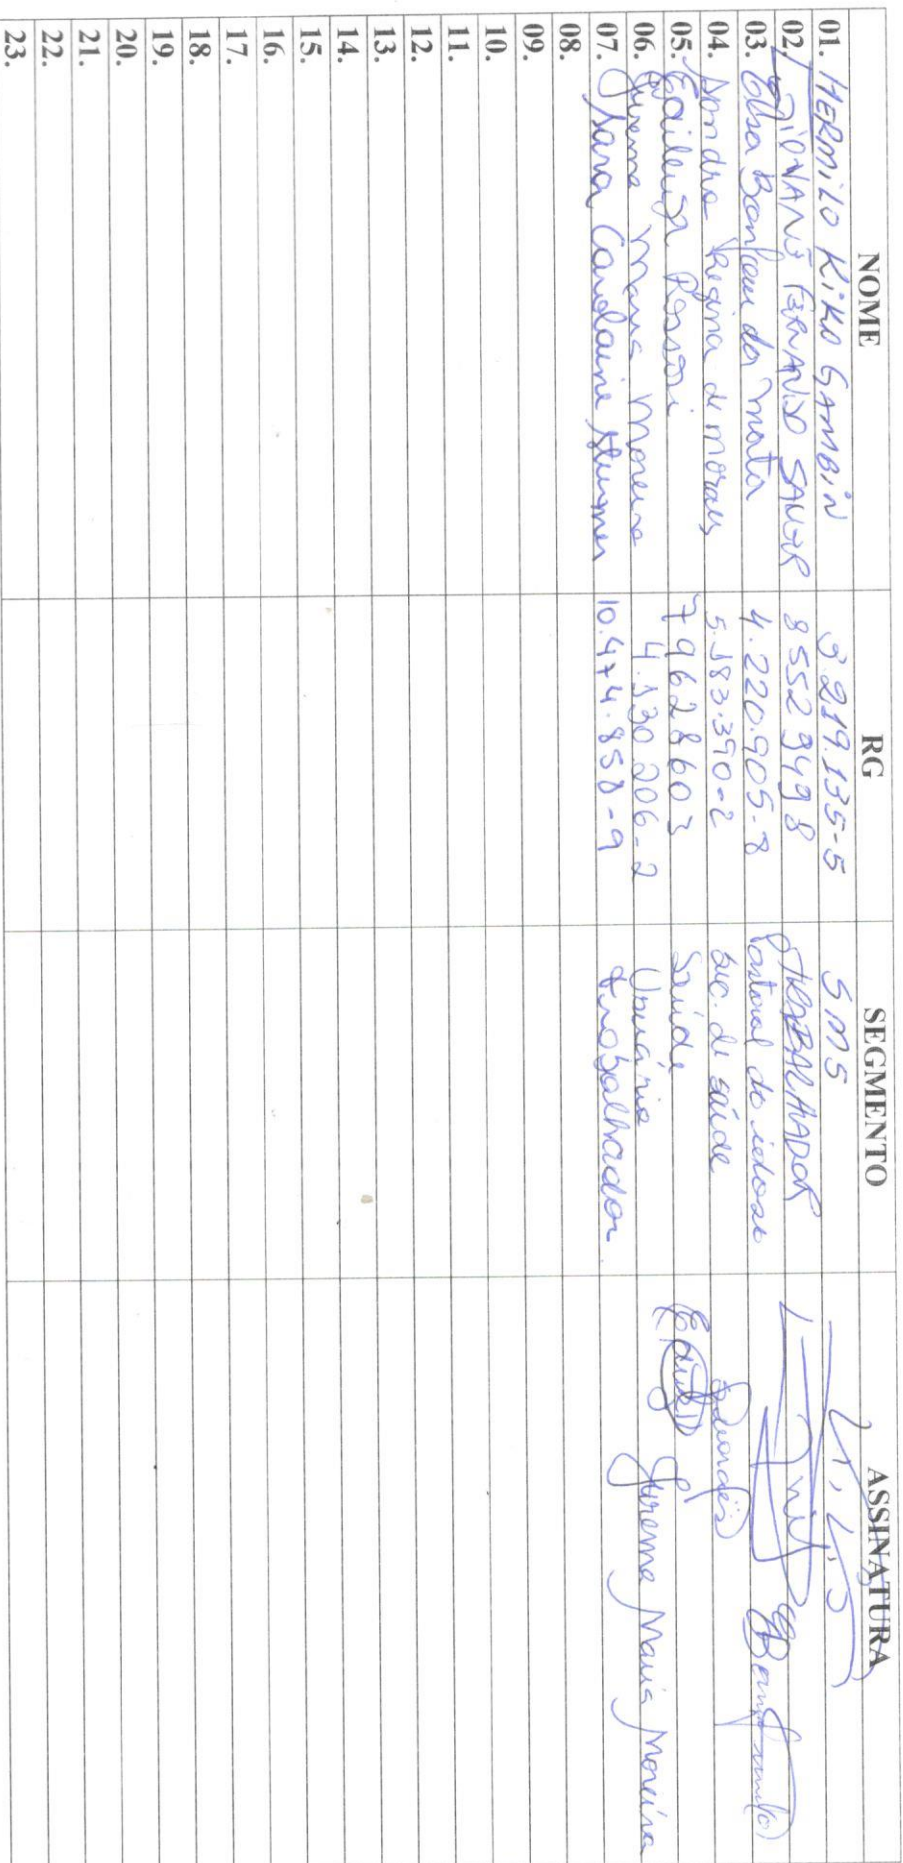 NOME RG SEGMENTO ASSINATURA
01. HERMILO KIKO GAMBIN 9.219.135-5 SMS
02. GIOVANI FERNANDO 85523498 TRABALHADOR
03. Elsa Bonfam da Motta 4.220.905-8 Pastoral do idoso
04. Sandra Regina de Morais 5.183.390-2 Sec. de saúde
05. Edileusa Rossoni 79628603 Saúde
06. Jurema Maria Moreira 4.130.206-2 Usuário Jurema Maria Moreira
07. Carolaine 10.474.858-9 trabalhador
08.
09.
10.
11.
12.
13.
14.
15.
16.
17.
18.
19.
20.
21.
22.
23.